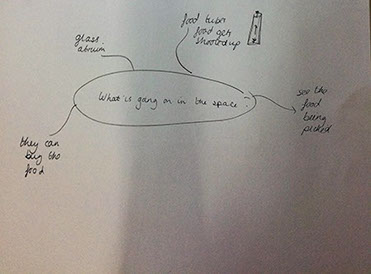 glass
atrium
food tubes
food gets
shooted up
What is going on in the space?
see the
food
being
picked
they can
buy the
food